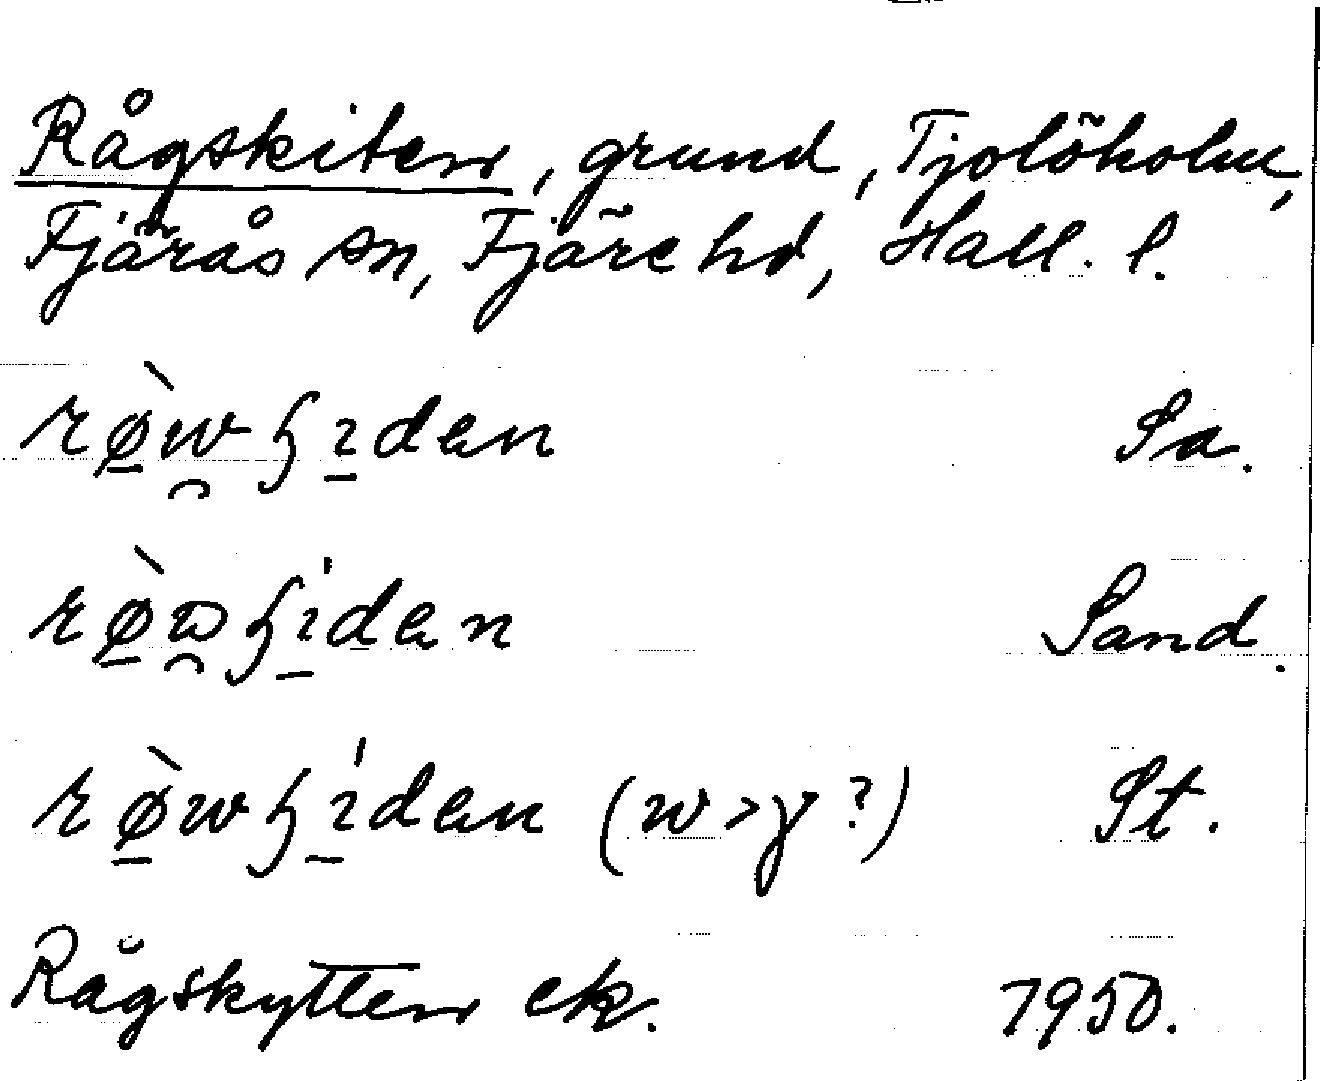 Rågskiten, grund, Tjolöholm,
Fjärås sn, Fjäre hd, Hall. l.
rø̠̀w̯ɧɪ̠den Sa.
rø̠̀ω̯ɧɪ̠́den Sand.
rø̠̀wɧɪ̠́den (w > γ ?) St.
Rågskytten ek. 1950.